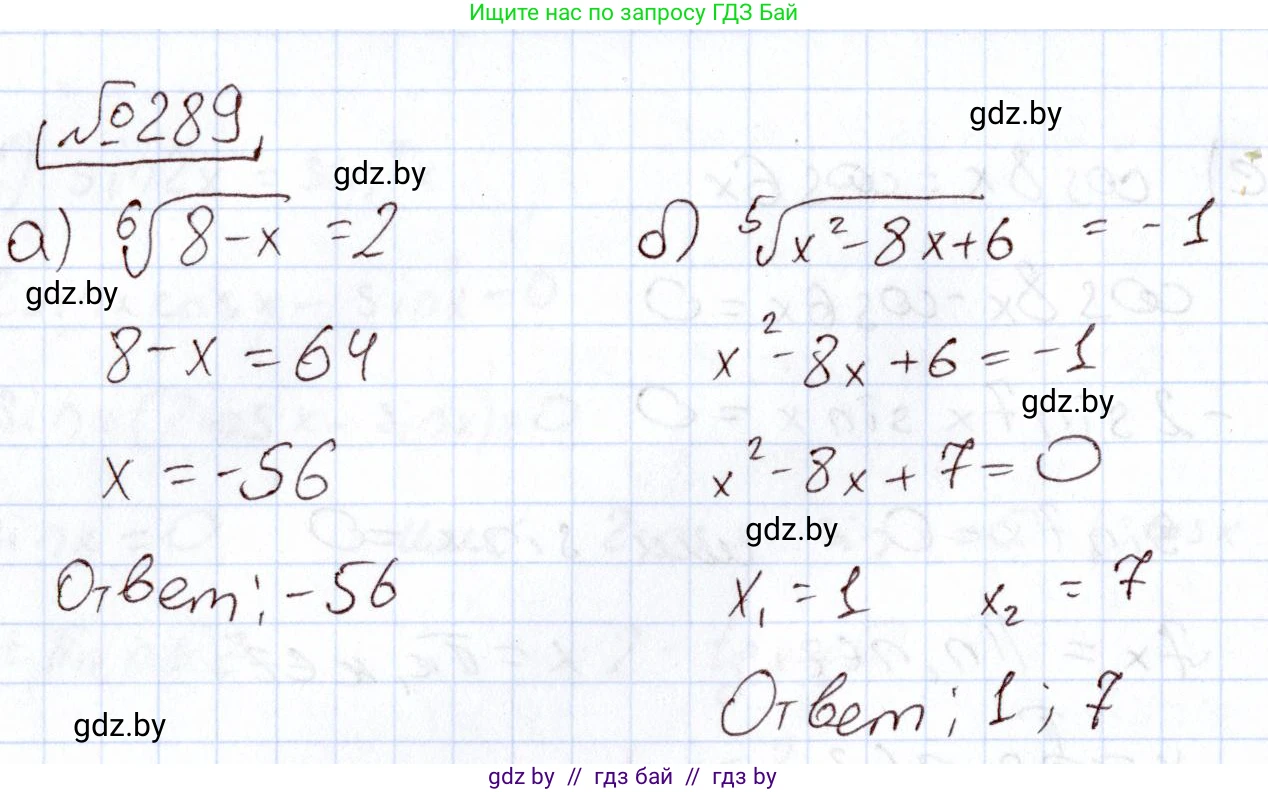 Ищите нас по запросу ГДЗ Бай
№289
gdz.by
gdz.by
а) ⁶√(8-x) = 2
gdz.by
8-x = 64
x = -56
Ответ: -56
gdz.by
б) ⁵√(x²-8x+6) = -1
x²-8x+6 = -1
gdz.by
x²-8x+7 = 0
gdz.by
x₁ = 1 x₂ = 7
Ответ: 1; 7
gdz.by // гдз бай // gdz by